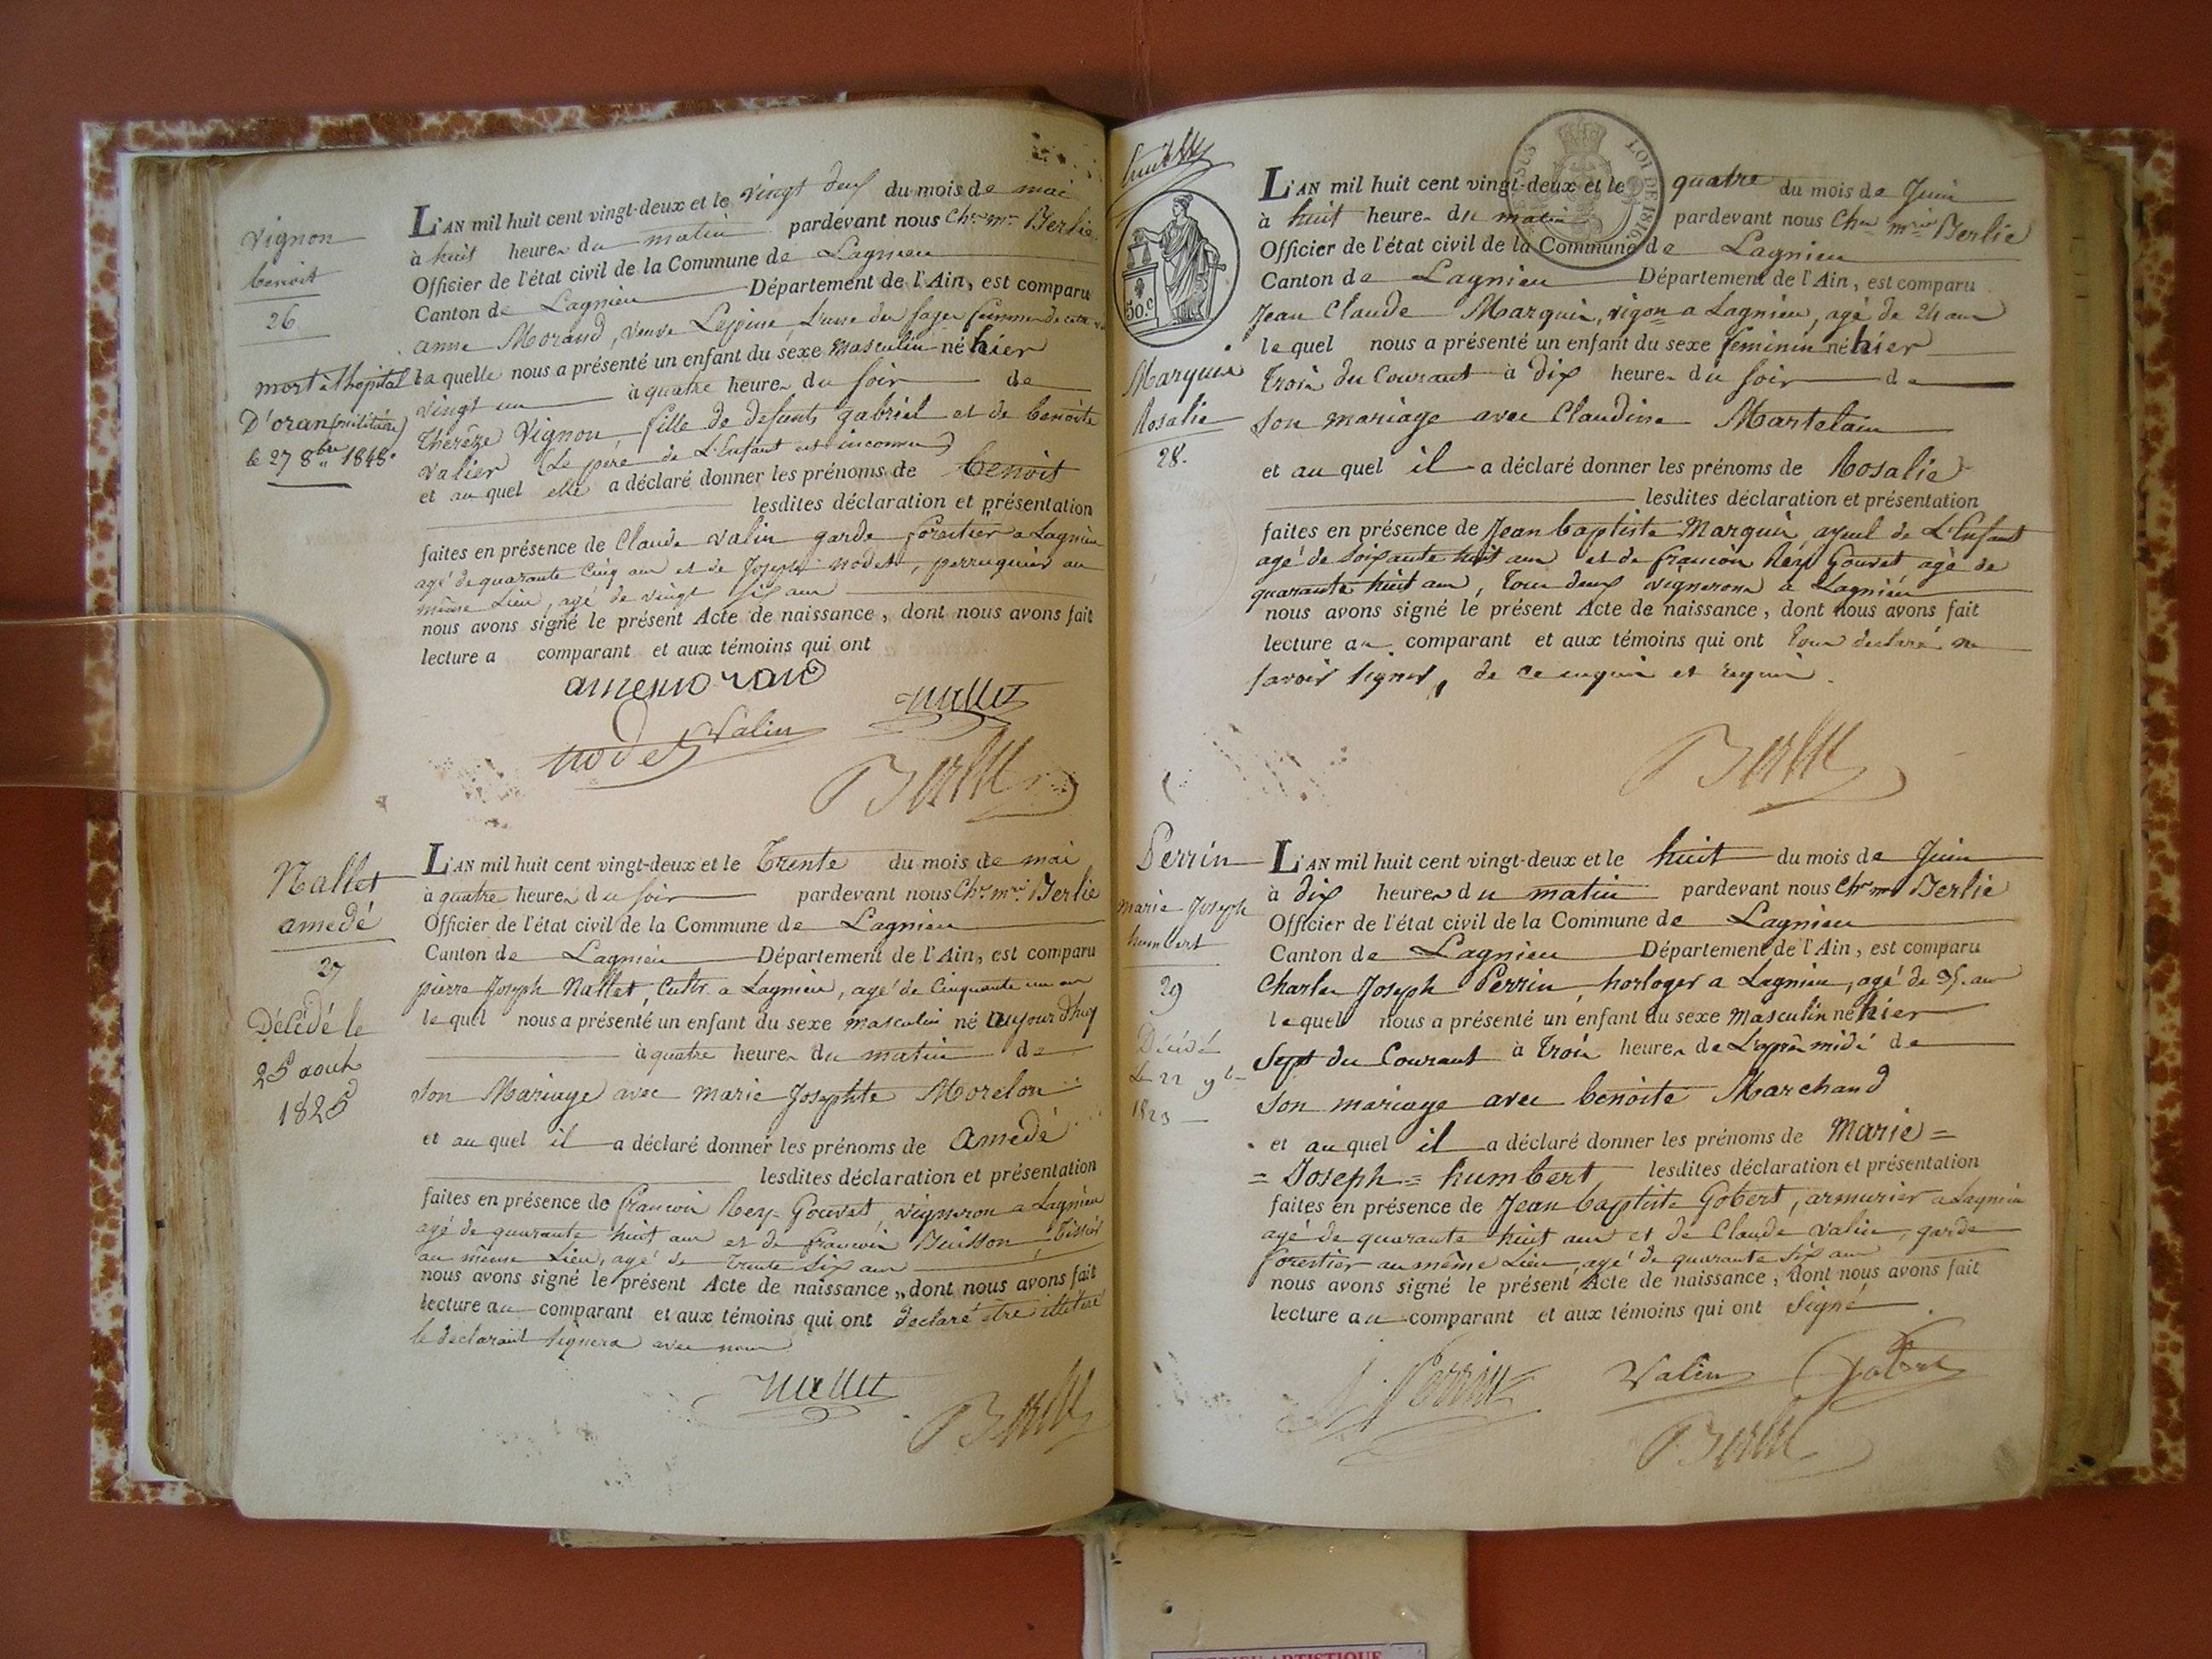 Vignon
benoit
26
mort à l'hopital
D'oran (militaire)
le 27 8bre 1848.
L'AN mil huit cent vingt-deux et le vingt deux du mois de mai
à huit heures du matin pardevant nous Chles mie Berlie
Officier de l'état civil de la Commune de Lagnieu
Canton de Lagnieu Département de l'Ain, est comparu
anne Morand, veuve Lepine, l'une des sages femmes de cette
la quelle nous a présenté un enfant du sexe masculin né hier
vingt un à quatre heures du soir de
Therèze Vignon, fille de defunts gabriel et de benoite
valier (le pere de L'Enfant est inconnu)
et au quel elle a déclaré donner les prénoms de benoit
lesdites déclaration et présentation
faites en présence de Claude valin garde forestier a Lagnieu
agé de quarante Cinq ans et de Joseph nodet, perruquier au
même Lieu, agé de vingt six ans
nous avons signé le présent Acte de naissance, dont nous avons fait
lecture a comparant et aux témoins qui ont
anne morand
nallet
nodet Valin
Berlie
Nallet
amedé
27
Décédé le
25 aout
1825
L'AN mil huit cent vingt-deux et le Trente du mois de mai
à quatre heures du soir pardevant nous Chles mie Berlie
Officier de l'état civil de la Commune de Lagnieu
Canton de Lagnieu Département de l'Ain, est comparu
pierre Joseph Nallet, Cultr. a Lagnieu, agé de Cinquante un an
le quel nous a présenté un enfant du sexe masculin né aujourd'huy
à quatre heures du matin de
son Mariage avec marie Josephte Morelon
et au quel il a déclaré donner les prénoms de amedé
lesdites déclaration et présentation
faites en présence de francois Rey-Gouvet, vigneron a Lagnieu
agé de quarante huit ans et de francois Buisson Tissier
au même Lieu, agé de Trente six ans
nous avons signé le présent Acte de naissance, dont nous avons fait
lecture au comparant et aux témoins qui ont declaré être illetéré
le declarant signera avec nous
nallet
Berlie
LOI DE 1816.
50.c
Marquis
Rosalie
28.
L'AN mil huit cent vingt-deux et le quatre du mois de Juin
à huit heures du matin pardevant nous Chles mie Berlie
Officier de l'état civil de la Commune de Lagnieu
Canton de Lagnieu Département de l'Ain, est comparu
Jean Claude Marquis, vigon a Lagnieu, agé de 24 ans
le quel nous a présenté un enfant du sexe feminin né hier
Trois du Courant à dix heures du soir de
son mariage avec Claudine Martelain
et au quel il a déclaré donner les prénoms de Rosalie
lesdites déclaration et présentation
faites en présence de Jean baptiste Marquis, ayeul de L'Enfant
agé de soixante huit ans et de francois Rey Gouvet agé de
quarante huit ans, tous deux vignerons a Lagnieu
nous avons signé le présent Acte de naissance, dont nous avons fait
lecture au comparant et aux témoins qui ont tous declaré ne
savoir signer, de ce enquis et requis.
Berlie
Perrin
marie Joseph
humbert
29
Décédé
Le 22 9b
1823
L'AN mil huit cent vingt-deux et le huit du mois de Juin
à dix heures du matin pardevant nous Chles mie Berlie
Officier de l'état civil de la Commune de Lagnieu
Canton de Lagnieu Département de l'Ain, est comparu
Charles Joseph Perrin, horloger a Lagnieu, agé de 35. ans
le quel nous a présenté un enfant du sexe masculin né hier
sept du Courant à trois heures de L'après midi de
son mariage avec benoite Marchand
et au quel il a déclaré donner les prénoms de Marie =
= Joseph = humbert lesdites déclaration et présentation
faites en présence de Jean baptiste Gobert, armurier a Lagnieu
agé de quarante huit ans et de Claude valin, garde
forestier au même Lieu, agé de quarante six ans
nous avons signé le présent Acte de naissance, dont nous avons fait
lecture au comparant et aux témoins qui ont signé
Perrin Valin Gobert
Berlie